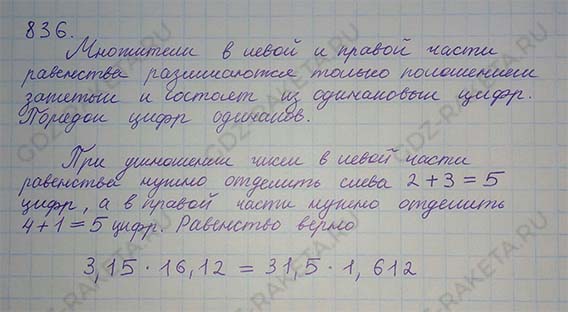 836.
Множители в левой и правой части
равенства различаются только положением
запятых и состоят из одинаковых цифр.
Порядок цифр одинаков.
При умножении чисел в левой части
равенства нужно отделить слева 2+3=5
цифр, а в правой части нужно отделить
4+1=5 цифр. Равенство верно
3,15 · 16,12 = 31,5 · 1,612
GDZ-RAKETA.RU